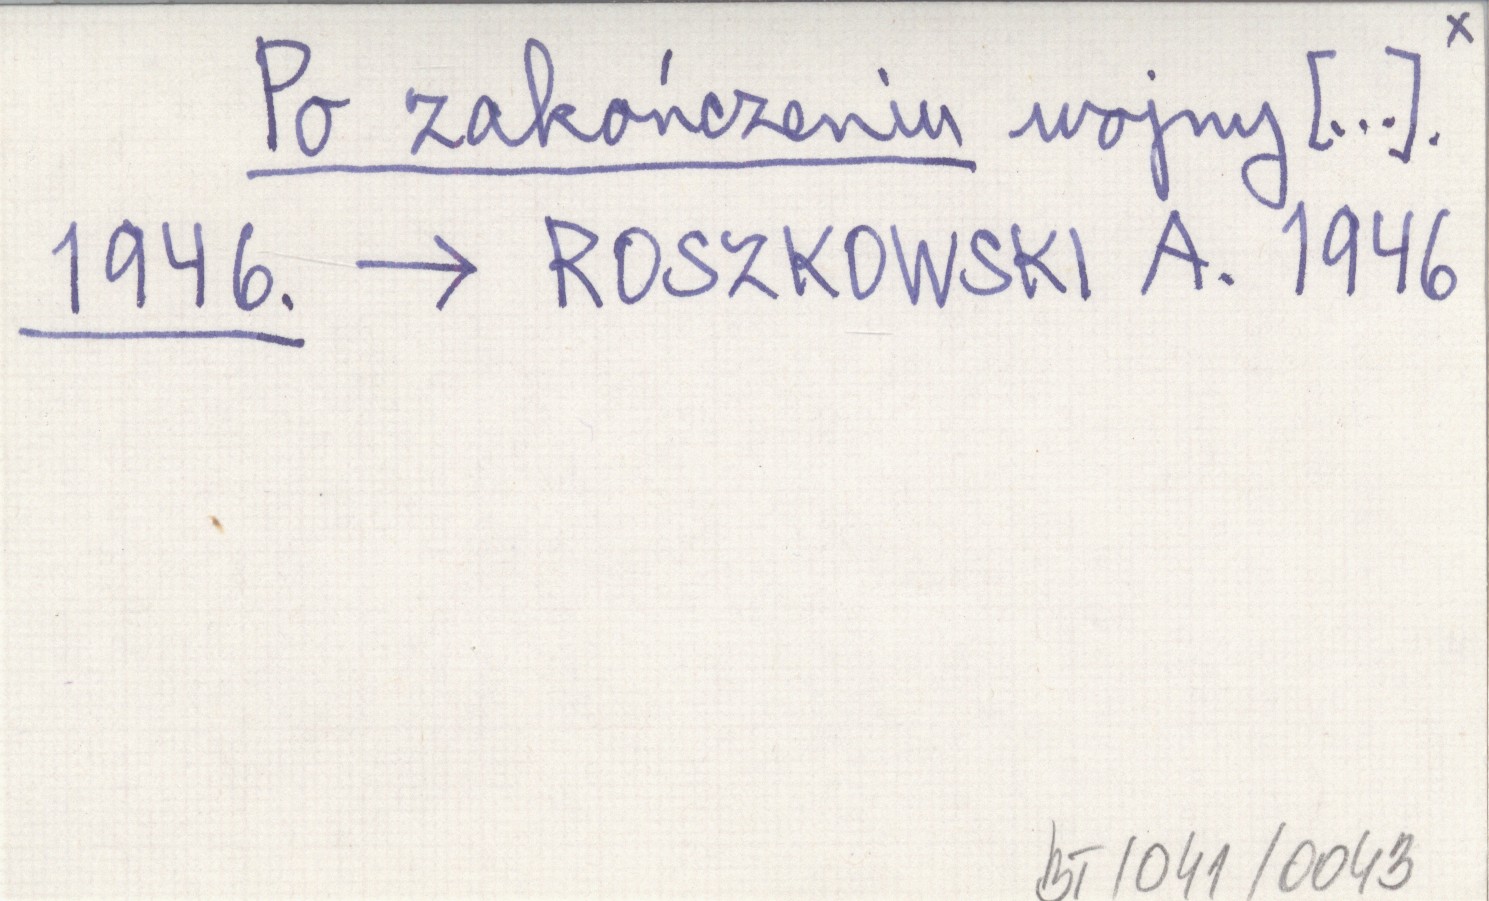 x
Po zakończeniu wojny [...].
1946. → ROSZKOWSKI A. 1946
BT/041/0043